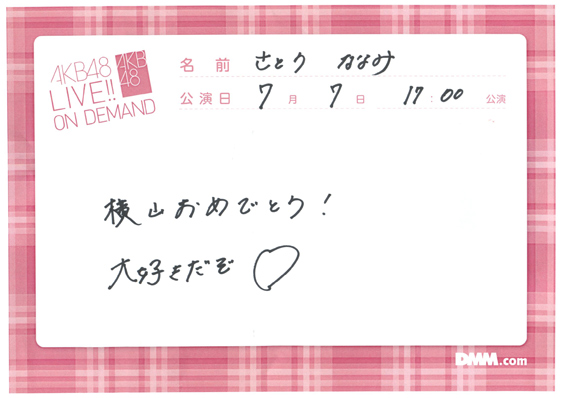 AKB48
LIVE!!
ON DEMAND
AKB
48
名前 さとう ななみ
公演日 7月 7日 17:00 公演
横山おめでとう!
大好きだぞ♡
DMM.com